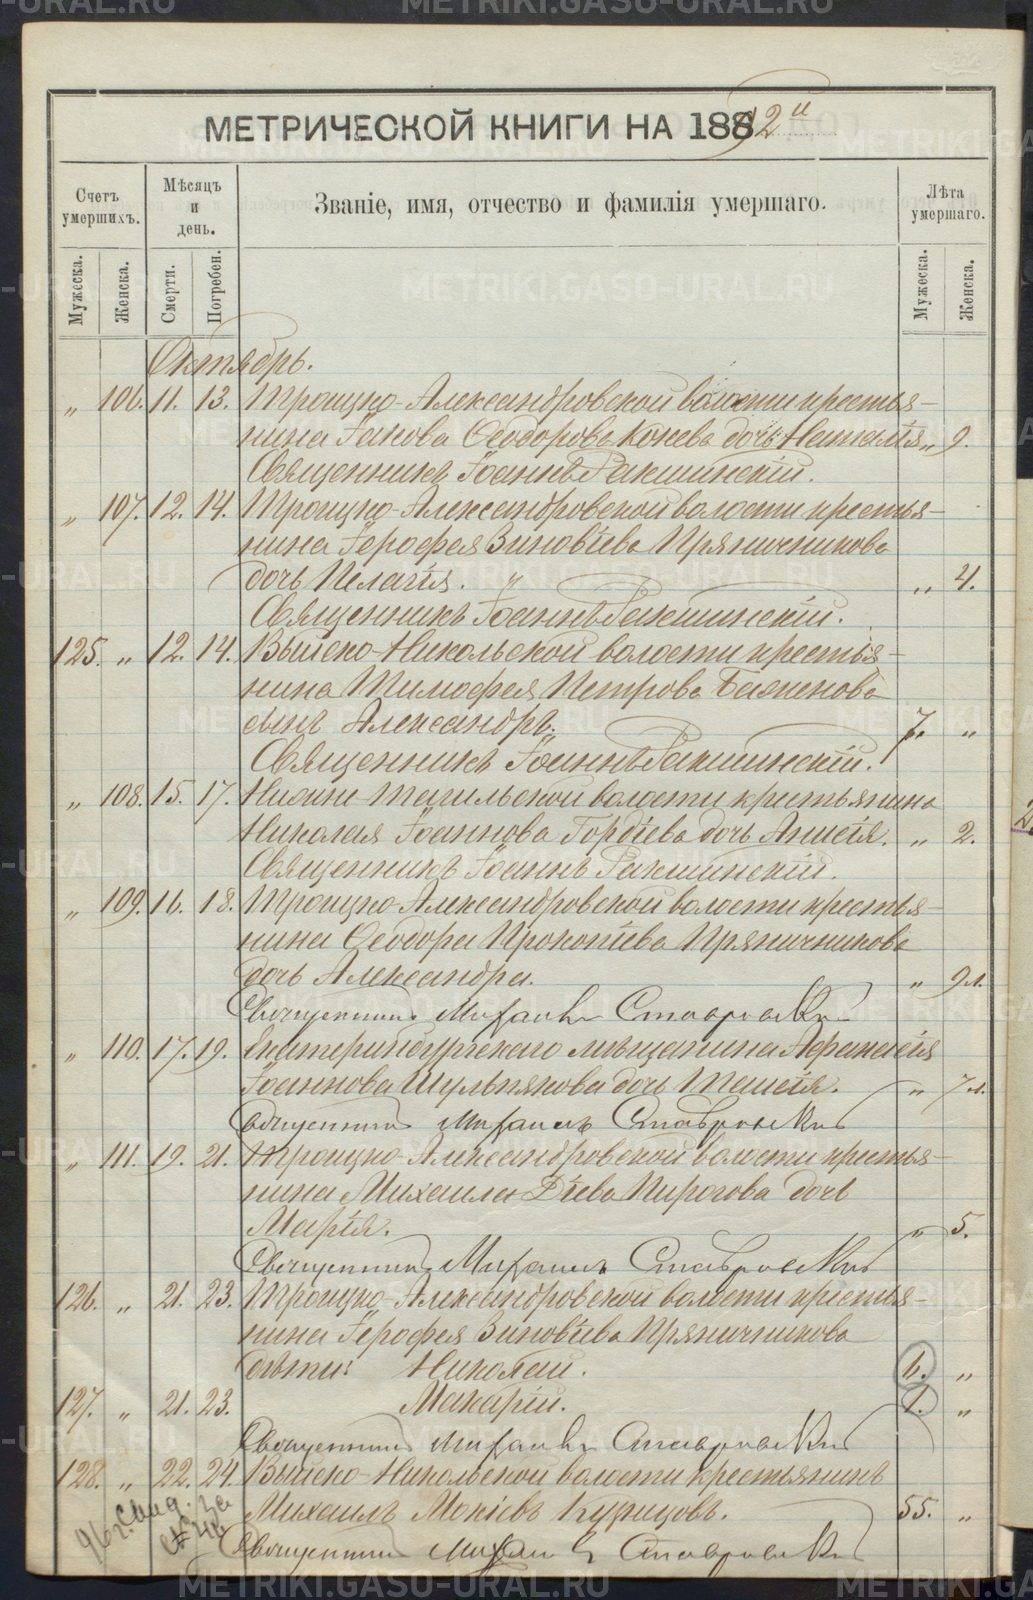 МЕТРИЧЕСКОЙ КНИГИ НА 1892й
Счетъ умершихъ.
Мѣсяцъ и день.
Званіе, имя, отчество и фамилія умершаго.
Лѣта умершаго.
Мужеска. Женска. Смерти. Погребен. Мужеска. Женска.
Октябрь.
„ 106. 11. 13. Троицко-Александровской волости крестья-
нина Іакова Ѳеодорова Конева дочь Наталія „ 9.
Священникъ Іоаннъ
„ 107. 12. 14. Троицко-Александровской волости крестья-
нина Іерофея Зиновіева Пряничникова
дочь Пелагія. „ 4.
Священникъ Іоаннъ
125. „ 12. 14. Выйско-Никольской волости крестья-
нина Тимофея Петрова Баженова
сынъ Александръ. 7. „
Священникъ Іоаннъ
„ 108. 15. 17. Нижне-Тагильской волости крестьянина
Николая Іоаннова Гордіева дочь Анисія. „ 2.
Священникъ Іоаннъ
„ 109. 16. 18. Троицко-Александровской волости крестья-
нина Ѳеодора Прокопіева Пряничникова
дочь Александра. „ 9 л.
Священникъ Михаилъ Ставровскій
„ 110. 17. 19. Екатеринбургскаго мѣщанина Афанасія
Іоаннова Шульпякова дочь Таисія. „ 7 л.
Священникъ Михаилъ Ставровскій
„ 111. 19. 21. Троицко-Александровской волости крестья-
нина Михаила Діева Пирогова дочь
Марія. „ 5.
Священникъ Михаилъ Ставровскій
126. „ 21. 23. Троицко-Александровской волости крестья-
нина Іерофея Зиновіева Пряничникова
дѣти: Николай. 6. „
127. „ 21. 23. Макарій. 1. „
Священникъ Михаилъ Ставровскій
128. „ 22. 24. Выйско-Никольской волости крестьянинъ
Михаилъ Мокіевъ Купцовъ. 55. „
Священникъ Михаилъ Ставровскій
METRIKI.GASO-URAL.RU